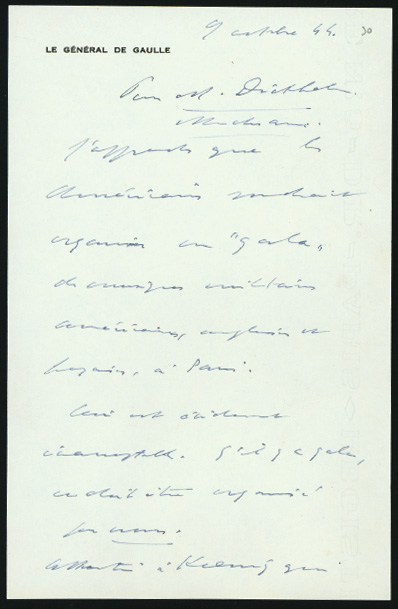 9 octobre 44.
30
LE GÉNÉRAL DE GAULLE
Pour M. Diethelm.
J'apprends que les
Américains voudraient
organiser un "gala"
de musiques militaires
américaines, anglaises et
françaises, à Paris.
Ceci est évidemment
inacceptable. S'il y a gala,
ce doit être organisé
par nous.
à Koenig qui